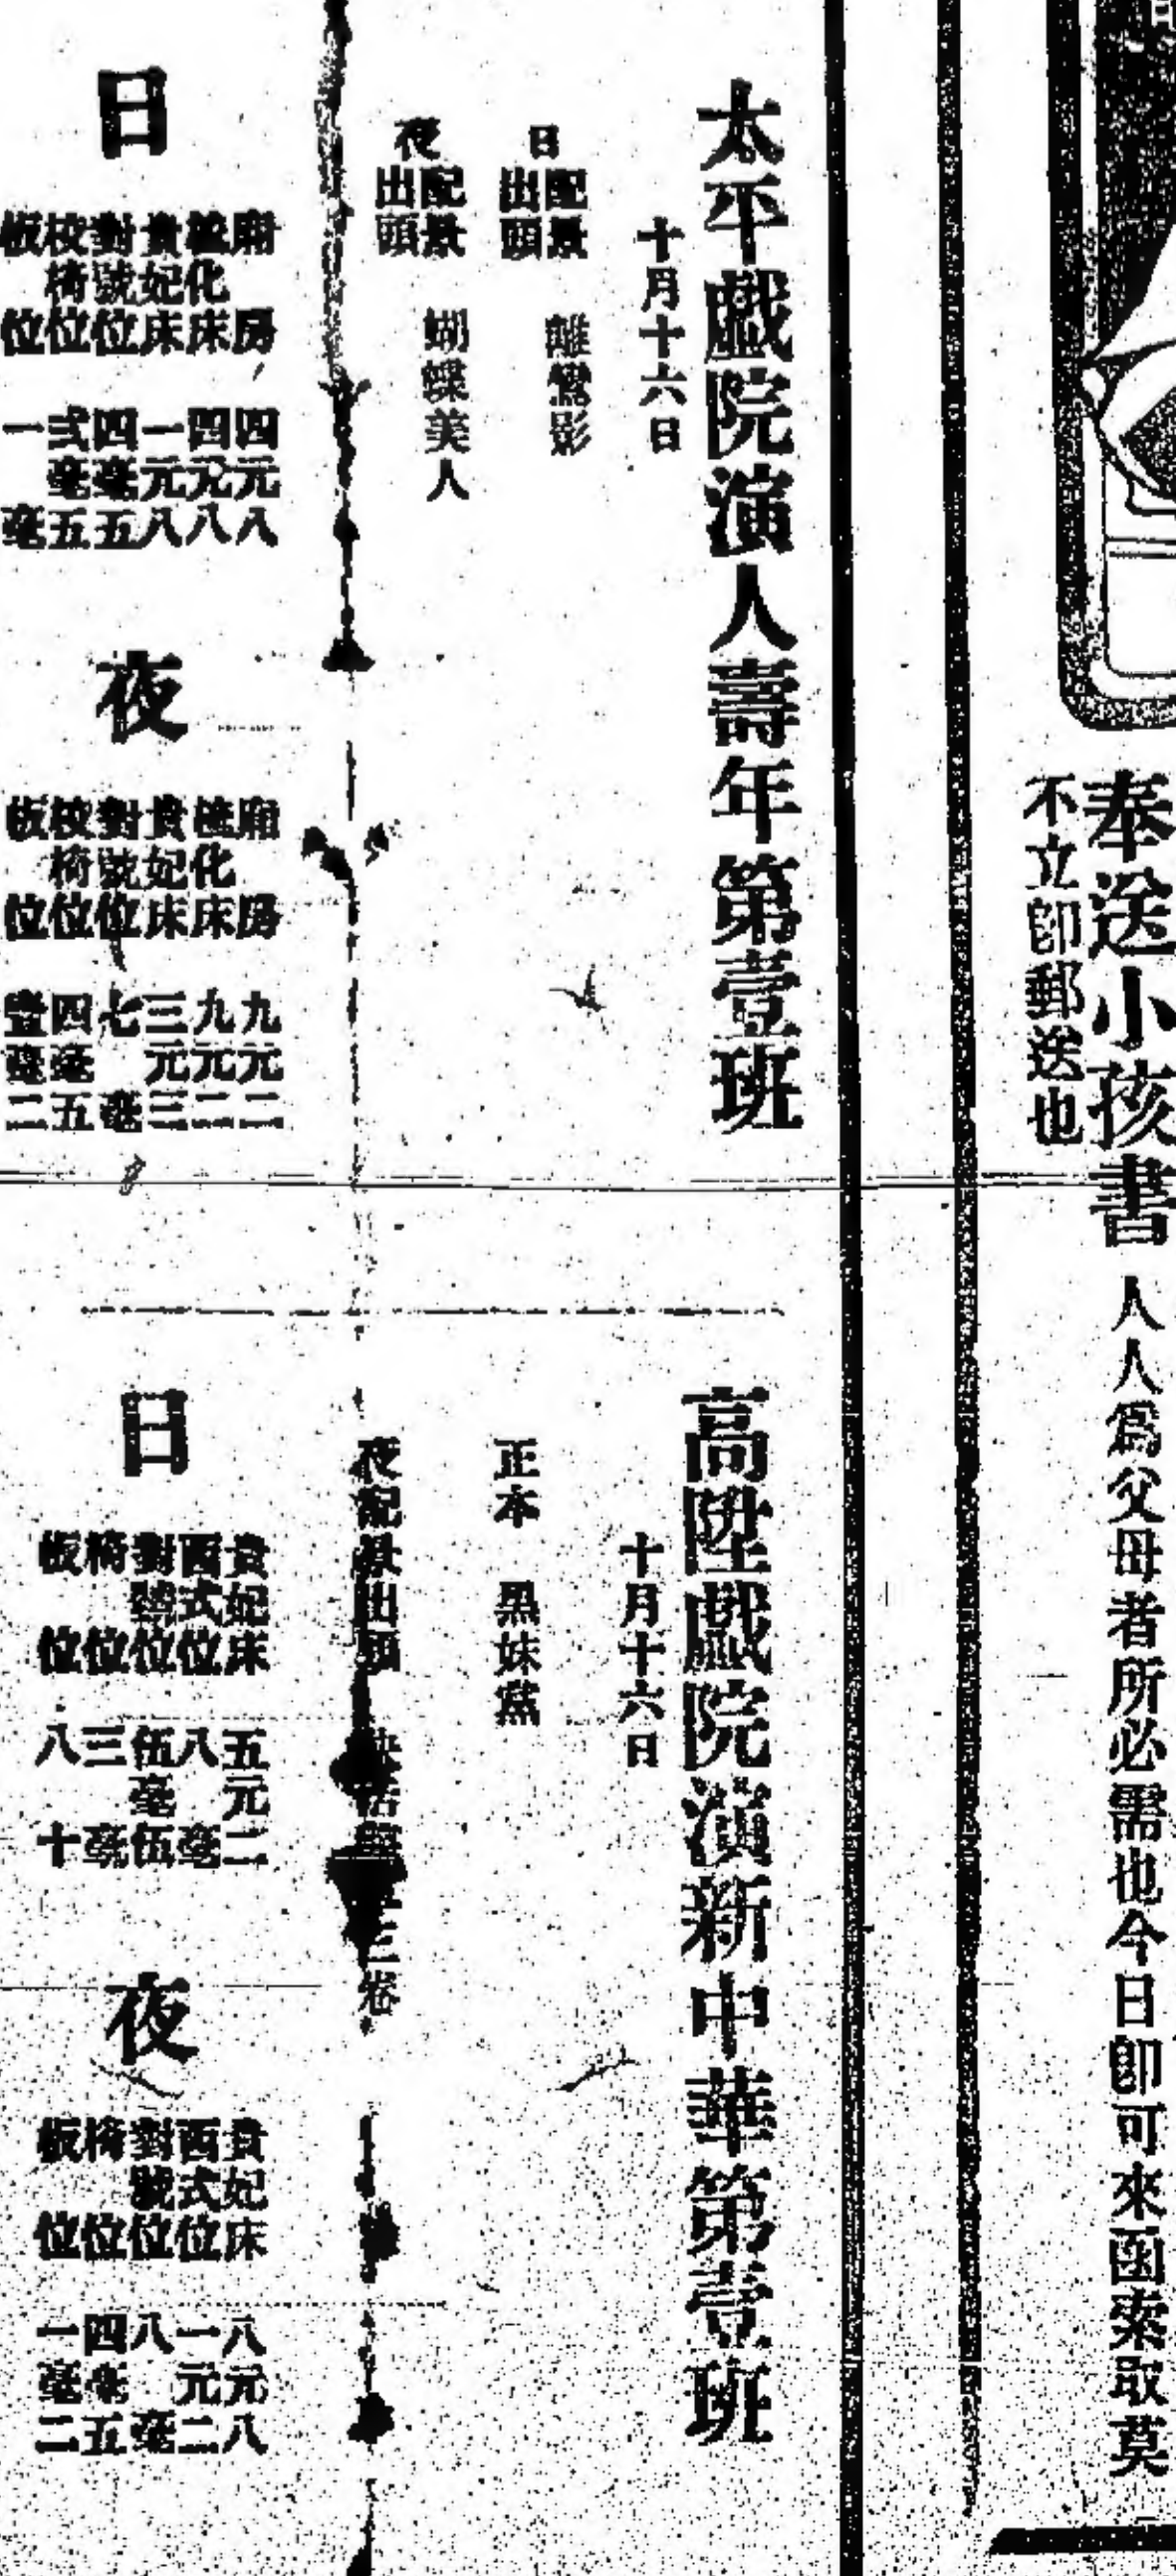 奉送小孩書
人人爲父母者所必需也今日卽可來函索取莫
不立卽郵送也
太平戲院演人壽年第壹班
十月十六日
日
配景
出頭
離鸞影
夜
配景
出頭
蝴蝶美人
日
廂房 四元八
化床 四元八
貴妃床 一元八
對號位 四毫五
椅位 弍毫五
板位 一毫
夜
廂房 九元二
化床 九元二
貴妃床 三元三
對號位 七毫
椅位 四毫五
板位 壹毫二
高陞戲院演新中華第壹班
十月十六日
正本 黑妹黨
夜配景出頭 三卷
日
貴妃床 五元二
西式位 八毫
對號位 伍毫伍
椅位 三毫
板位 八十
夜
貴妃床 八元八
西式位 一元二
對號位 八毫
椅位 四毫五
板位 一毫二